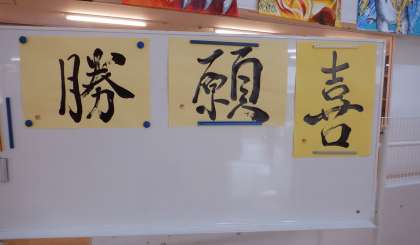 勝
願
喜